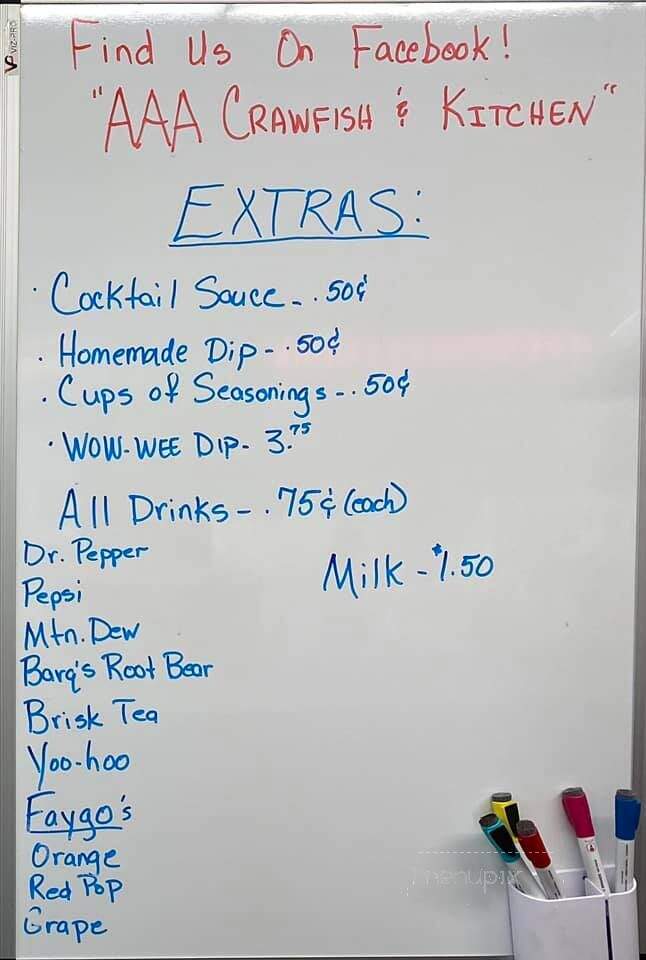 VIZ-PRO
Find Us On Facebook!
"AAA CRAWFISH & KITCHEN"
EXTRAS:
· Cocktail Sauce - .50¢
· Homemade Dip - .50¢
· Cups of Seasonings - .50¢
· WOW-WEE DIP - 3.75
All Drinks - .75¢ (each)
Dr. Pepper
Milk - $1.50
Pepsi
Mtn. Dew
Barq's Root Bear
Brisk Tea
Yoo-hoo
Faygo's
Orange
Red Pop
Grape
menupix